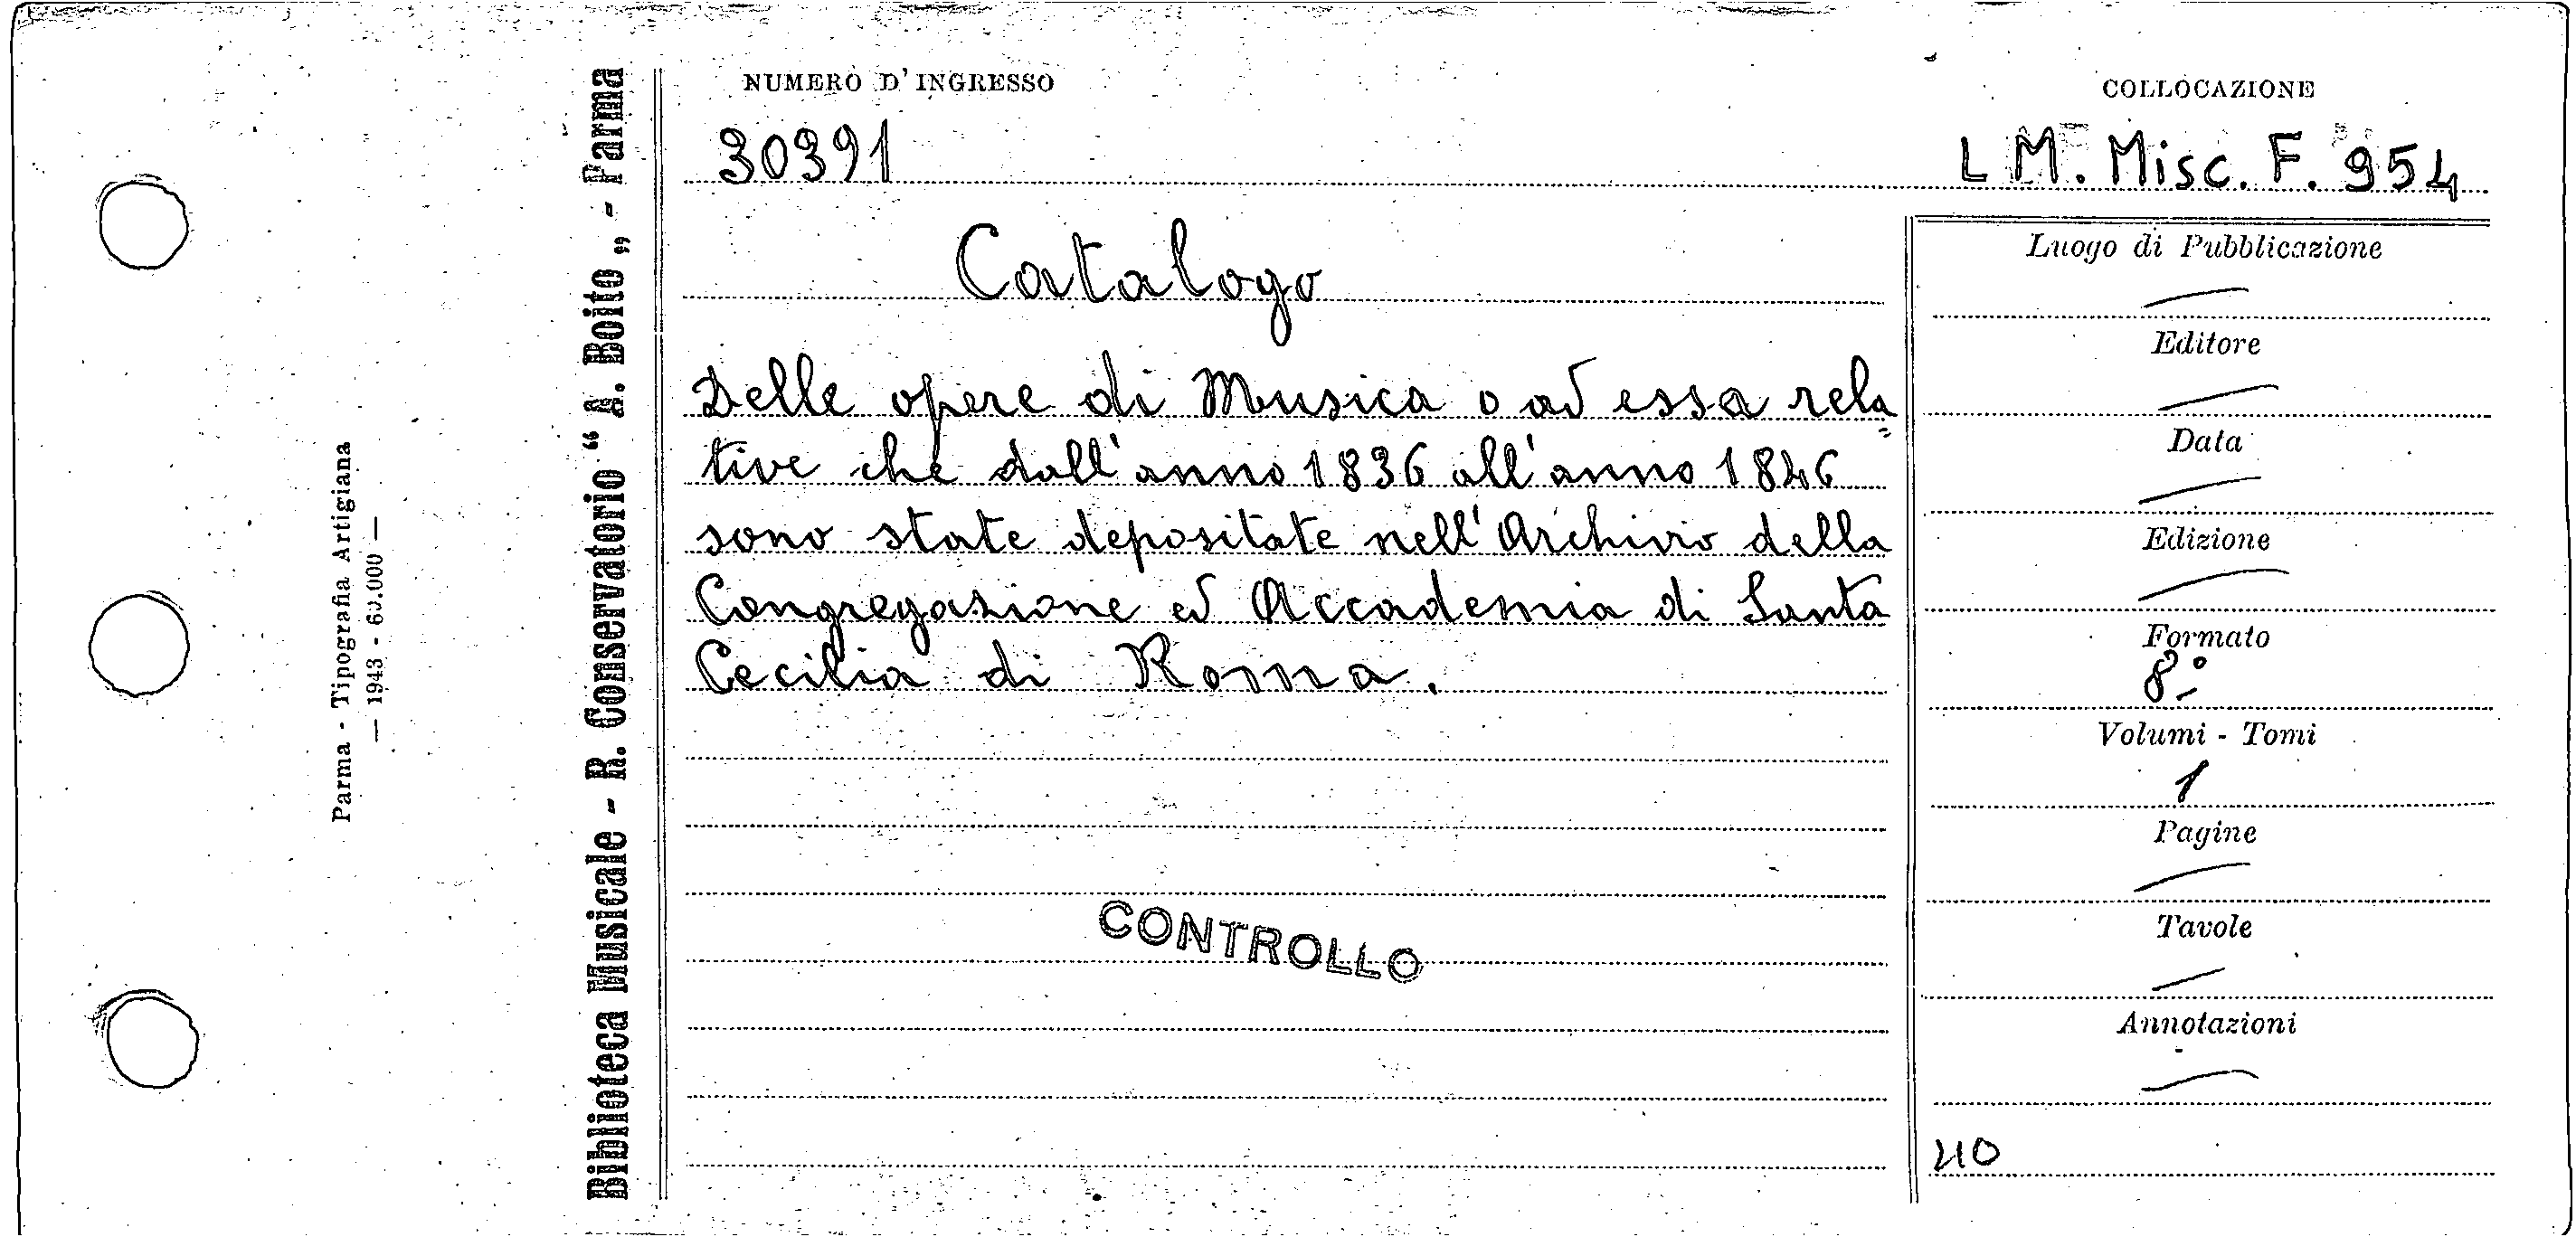 Parma - Tipografia Artigiana
— 1943 - 60.000 —
Biblioteca Musicale - R. Conservatorio “ A. Boito „ - Parma
NUMERO D' INGRESSO
30391
COLLOCAZIONE
L M. Misc. F. 954
Catalogo
Delle opere di Musica o ad essa rela
tive che dall'anno 1836 all'anno 1846
sono state depositate nell'Archivio della
Congregazione ed Accademia di Santa
Cecilia di Roma.
CONTROLLO
Luogo di Pubblicazione
Editore
Data
Edizione
Formato
8º
Volumi - Tomi
1
Pagine
Tavole
Annotazioni